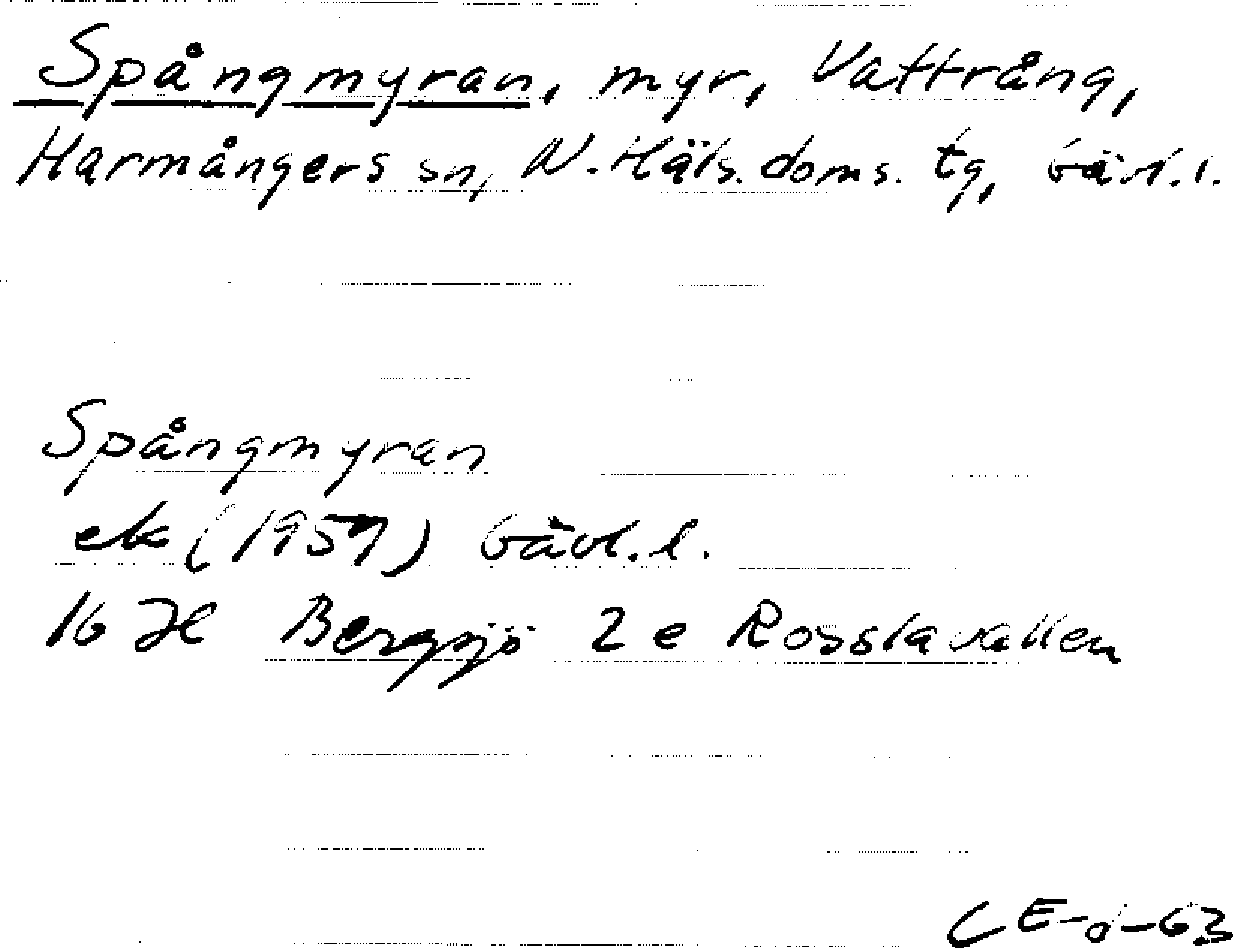 Spångmyran, myr, Vattrång,
Harmångers sn, N. Häls. doms. tg, Gävl. l.
Spångmyran
ek (1957) Gävl. l.
16 H Bergsjö 2 e Rosslavallen